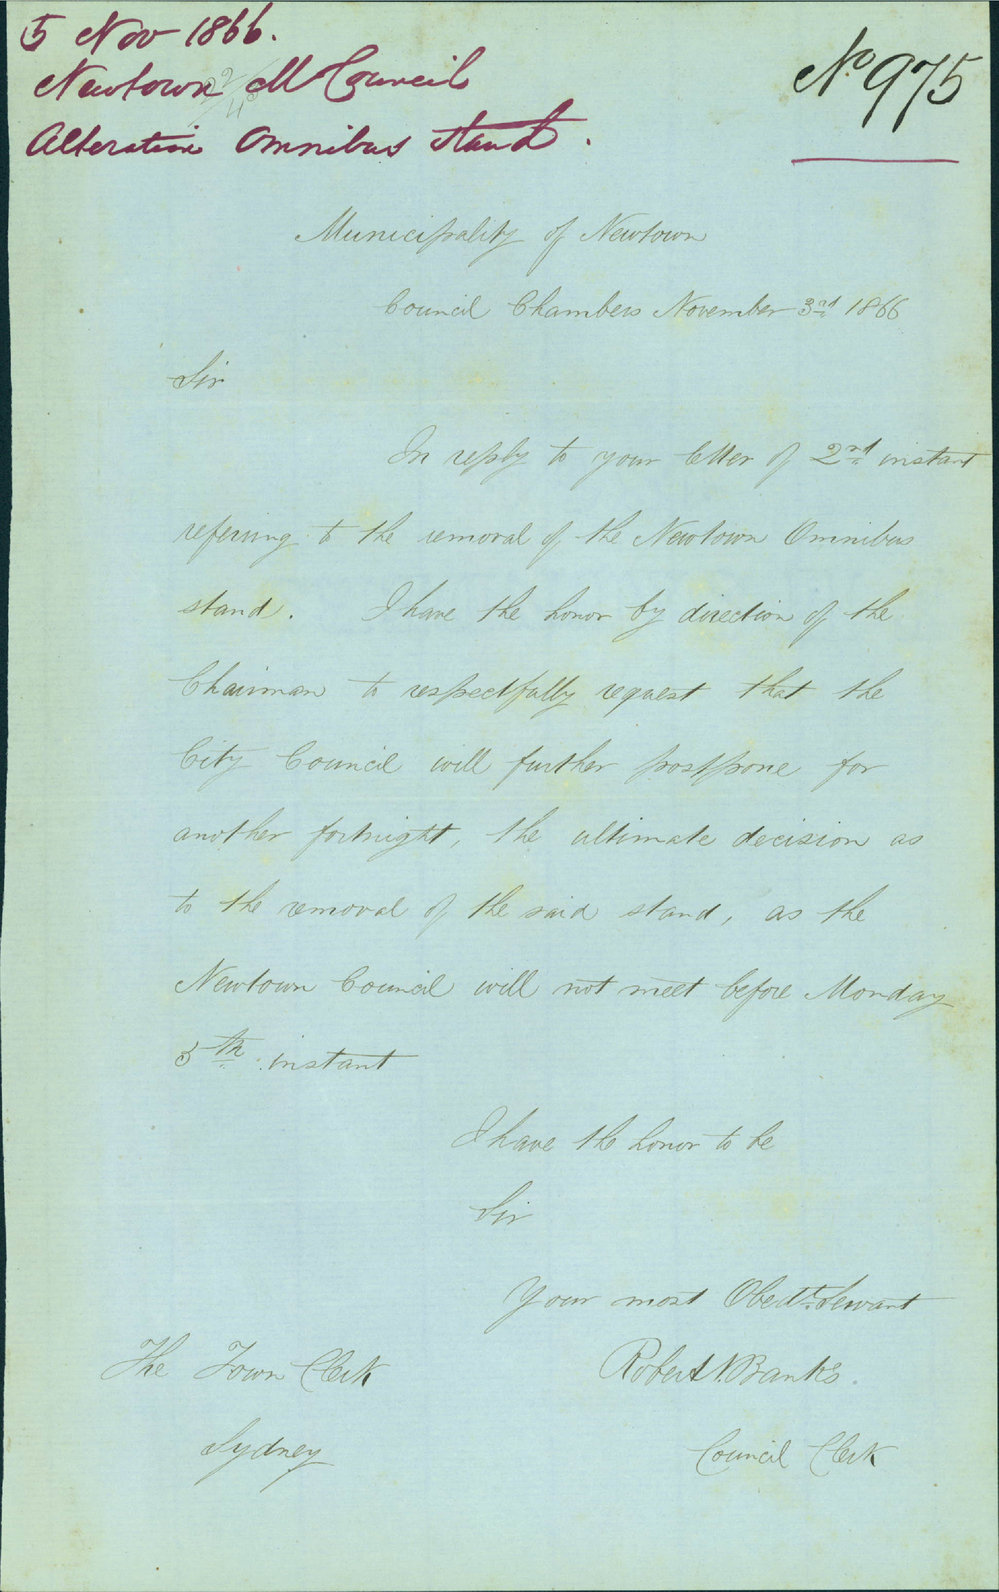 5 Nov 1866.
Newtown M Council
Alteration Omnibus Stand.
No 975
Municipality of Newtown
Council Chambers November 3rd 1866
Sir
In reply to your letter of 2nd instant
referring to the removal of the Newtown Omnibus
stand. I have the honor by direction of the
Chairman to respectfully request that the
City Council will further postpone for
another fortnight, the ultimate decision as
to the removal of the said stand, as the
Newtown Council will not meet before Monday
5th instant
I have the honor to be
Sir
Your most Obedt. Servant
Robert N. Banks.
Council Clerk
The Town Clerk
Sydney